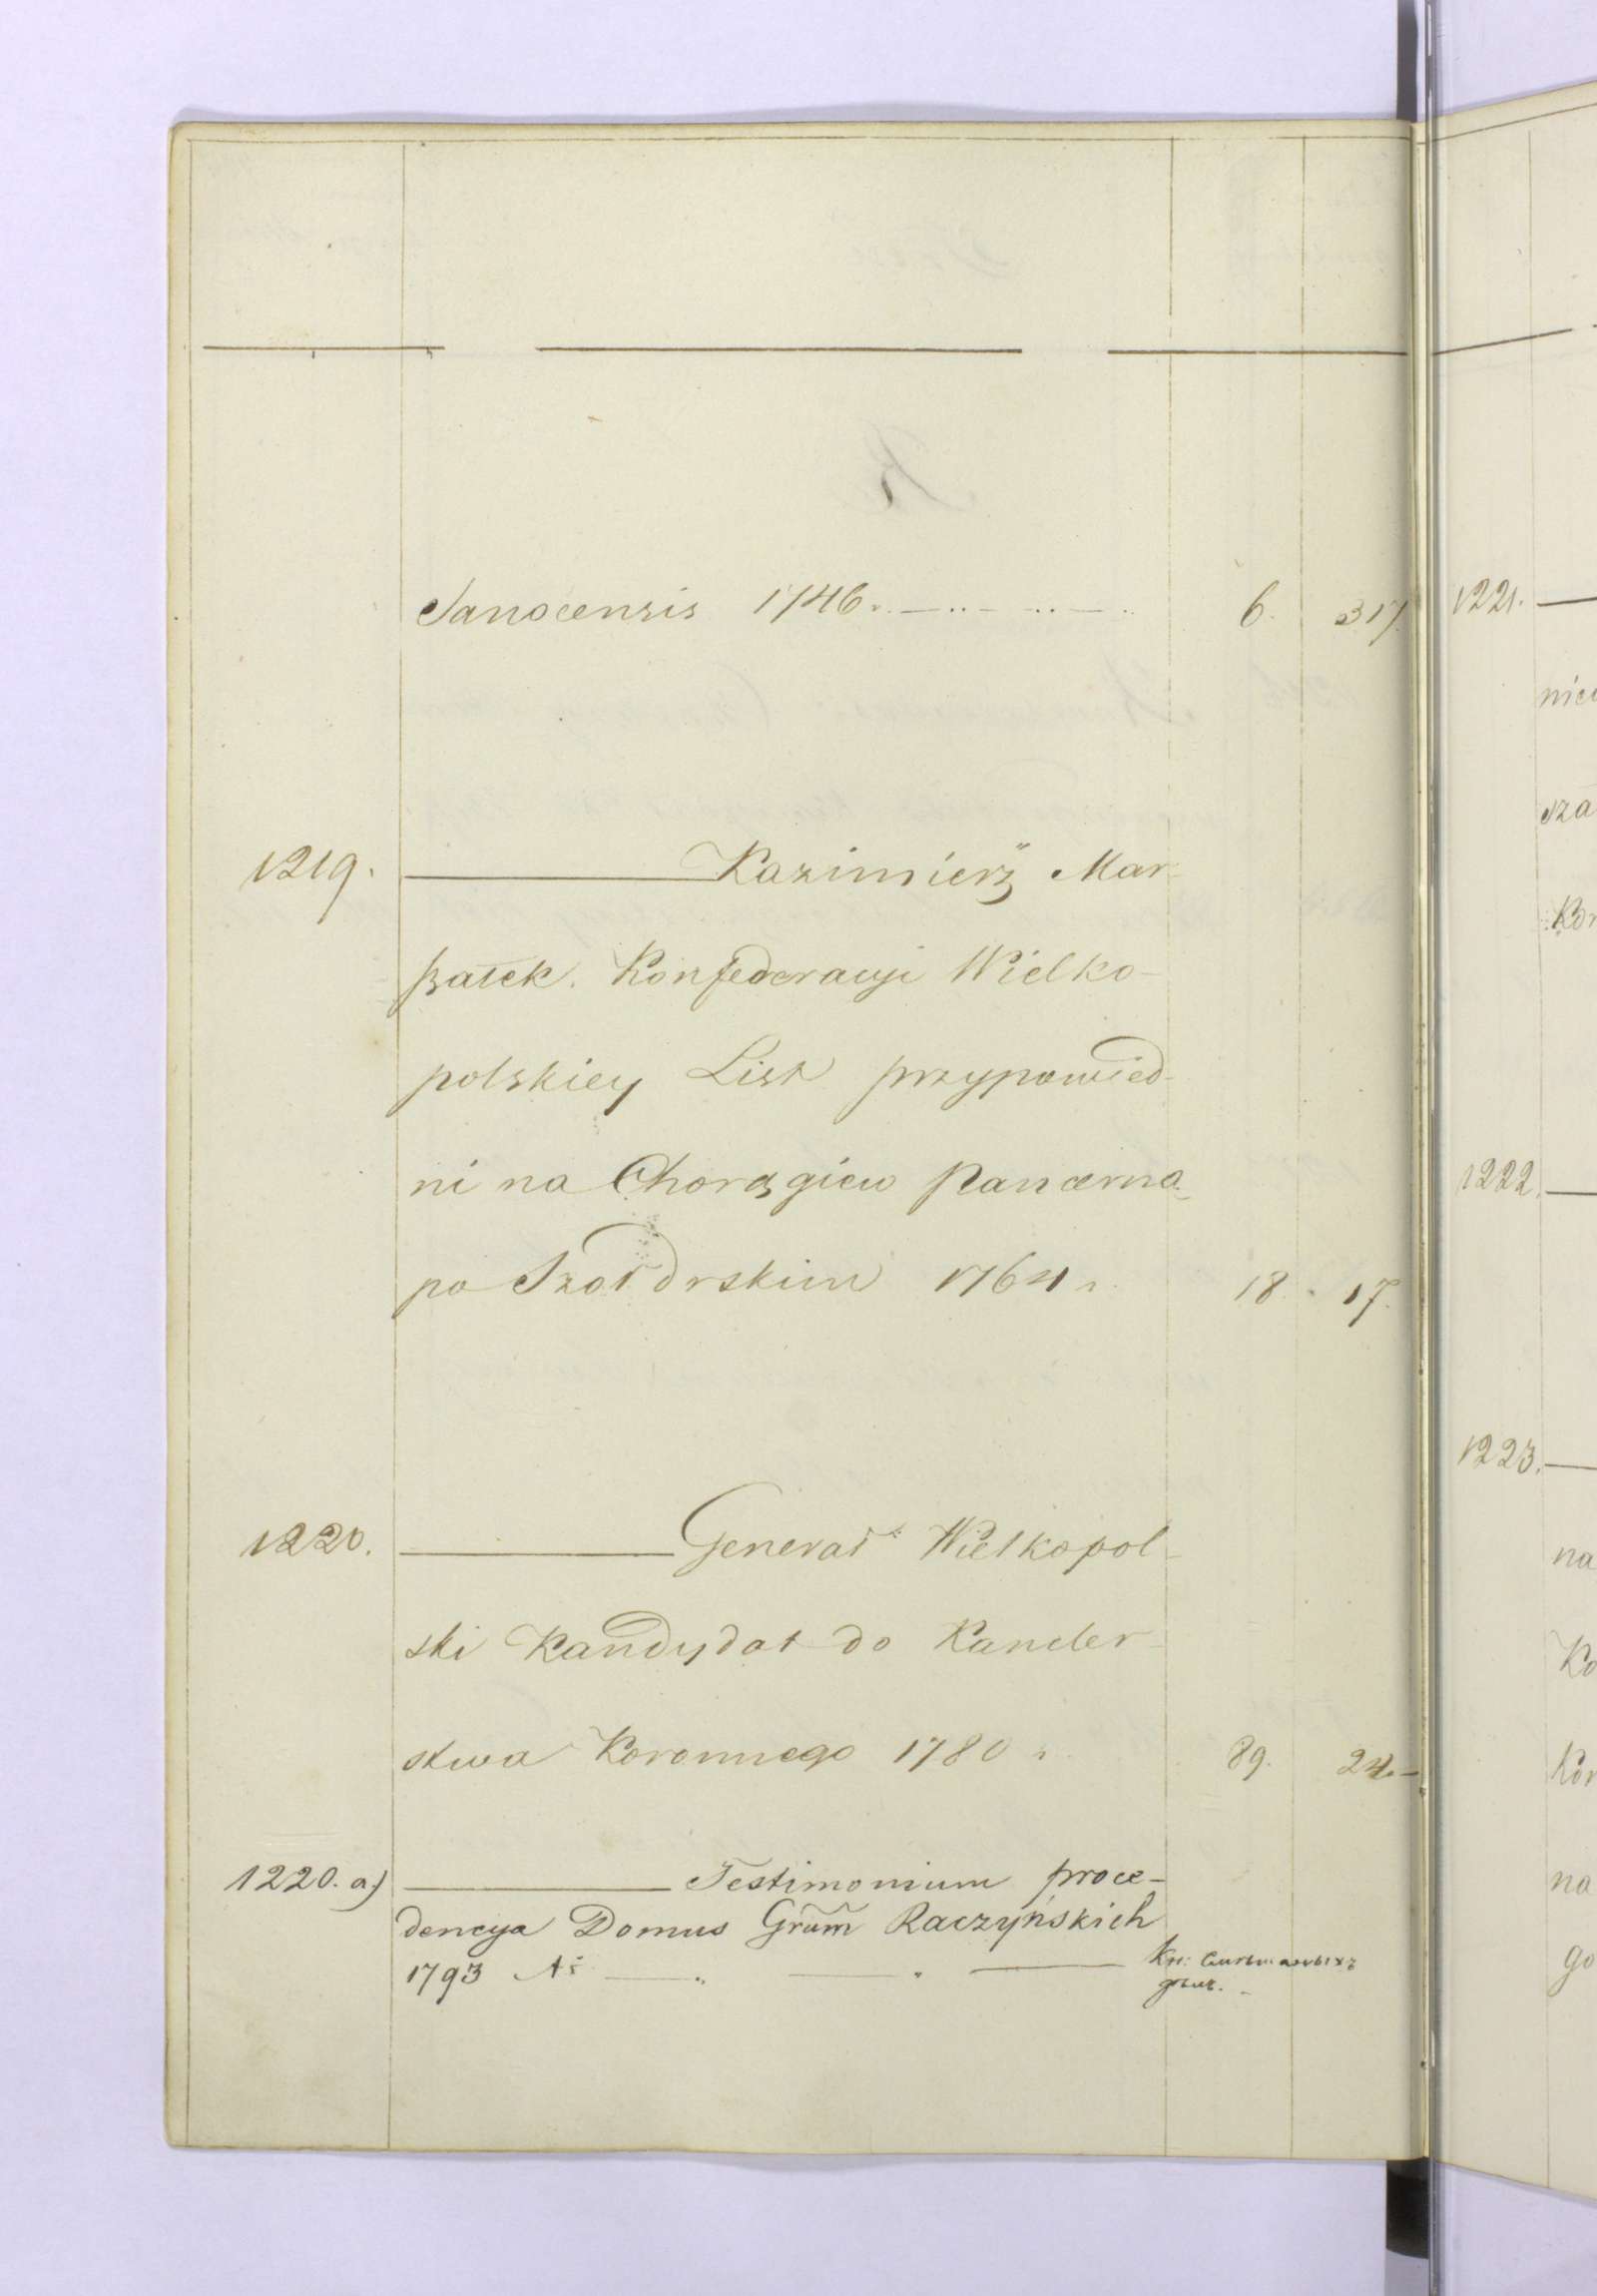 Sanocensis 1746. 6. 317.
1219. Kazimierz Mar-
szałek. Konfederacyi Wielko-
polskiey List przypowied-
ni na Chorągiew Pancerną
po Szołdrskim 1764 r. 18. 17.
1220. Generał Wielkopol-
ski Kandydat do Kancler-
stwa Koronnego 1780 r. 89. 24.
1220. a) Testimonium proce-
dencya Domus Grum Raczyńskich
1793 Aº Кн:
1221.
nie
sza
Kon
1222.
1223.
na
Ko
Kor
na
go